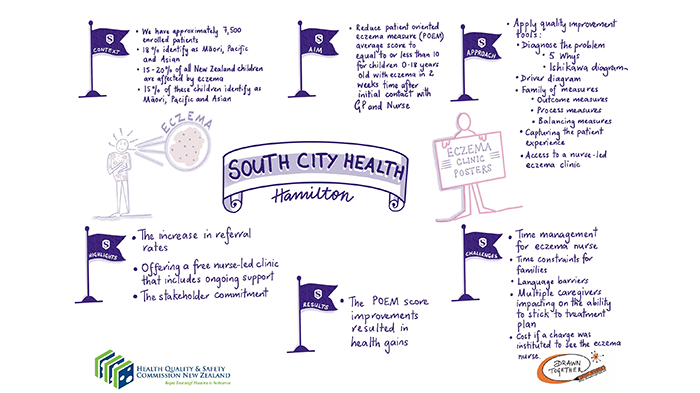 CONTEXT
• We have approximately 7,500
enrolled patients
• 18% identify as Māori, Pacific
and Asian
• 15-20% of all New Zealand children
are affected by eczema
• 15% of these children identify as
Māori, Pacific and Asian
AIM
• Reduce patient oriented
eczema measure (POEM)
average score to
equal to or less than 10
for children 0-18 years
old with eczema in 2
weeks time after
initial contact with
GP and Nurse
APPROACH
• Apply quality improvement
tools:
• Diagnose the problem
• 5 Whys
• Ishikawa diagram
• Driver diagram
• Family of measures
• Outcome measures
• Process measures
• Balancing measures
• Capturing the patient
experience
• Access to a nurse-led
eczema clinic
ECZEMA
SOUTH CITY HEALTH
Hamilton
ECZEMA
CLINIC
POSTERS
HIGHLIGHTS
• The increase in referral
rates
• Offering a free nurse-led clinic
that includes ongoing support
• The stakeholder commitment
RESULTS
• The POEM score
improvements
resulted in
health gains
CHALLENGES
• Time management
for eczema nurse
• Time constraints for
families
• Language barriers
• Multiple caregivers
impacting on the ability
to stick to treatment
plan
• Cost if a charge was
instituted to see the eczema
nurse.
HEALTH QUALITY & SAFETY
COMMISSION NEW ZEALAND
Kupu Taurangi Hauora o Aotearoa
DRAWN
TOGETHER